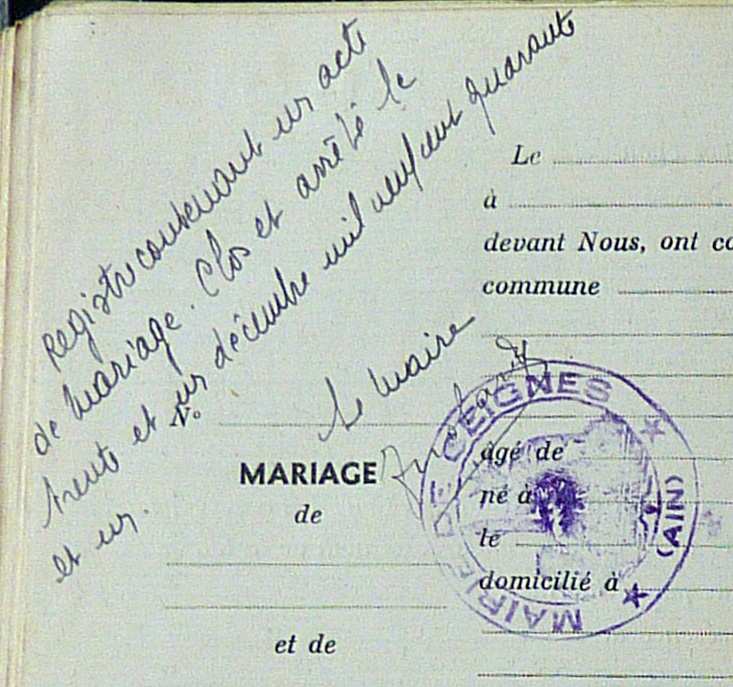 Registre contenant un acte
de mariage. Clos et arrêté le
trente et un décembre mil neuf cent quarante
et un.
Le Maire
Le
à
devant Nous, ont co
commune
N°
MARIAGE
de
et de
âgé de
né à
le
domicilié à
MAIRIE DE CEIGNES
(AIN)